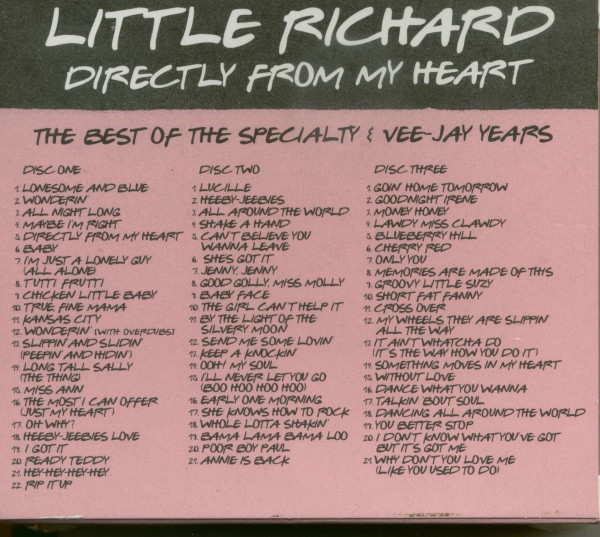 LITTLE RICHARD
DIRECTLY FROM MY HEART
THE BEST OF THE SPECIALTY & VEE-JAY YEARS
DISC ONE
1. LONESOME AND BLUE
2. WONDERIN'
3. ALL NIGHT LONG
4. MAYBE I'M RIGHT
5. DIRECTLY FROM MY HEART
6. BABY
7. I'M JUST A LONELY GUY
(ALL ALONE)
8. TUTTI FRUTTI
9. CHICKEN LITTLE BABY
10. TRUE, FINE MAMA
11. KANSAS CITY
12. WONDERIN' (WITH OVERDUBS)
13. SLIPPIN' AND SLIDIN'
(PEEPIN' AND HIDIN')
14. LONG TALL SALLY
(THE THING)
15. MISS ANN
16. THE MOST I CAN OFFER
(JUST MY HEART)
17. OH WHY?
18. HEEBY-JEEBIES LOVE
19. I GOT IT
20. READY TEDDY
21. HEY-HEY-HEY-HEY
22. RIP IT UP
DISC TWO
1. LUCILLE
2. HEEBY-JEEBIES
3. ALL AROUND THE WORLD
4. SHAKE A HAND
5. CAN'T BELIEVE YOU
WANNA LEAVE
6. SHE'S GOT IT
7. JENNY, JENNY
8. GOOD GOLLY, MISS MOLLY
9. BABY FACE
10. THE GIRL CAN'T HELP IT
11. BY THE LIGHT OF THE
SILVERY MOON
12. SEND ME SOME LOVIN'
13. KEEP A KNOCKIN'
14. OOH! MY SOUL
15. I'LL NEVER LET YOU GO
(BOO HOO HOO HOO)
16. EARLY ONE MORNING
17. SHE KNOWS HOW TO ROCK
18. WHOLE LOTTA SHAKIN'
19. BAMA LAMA BAMA LOO
20. POOR BOY PAUL
21. ANNIE IS BACK
DISC THREE
1. GOIN' HOME TOMORROW
2. GOODNIGHT IRENE
3. MONEY HONEY
4. LAWDY MISS CLAWDY
5. BLUEBERRY HILL
6. CHERRY RED
7. ONLY YOU
8. MEMORIES ARE MADE OF THIS
9. GROOVY LITTLE SUZY
10. SHORT FAT FANNY
11. CROSS OVER
12. MY WHEELS THEY ARE SLIPPIN'
ALL THE WAY
13. IT AIN'T WHATCHA DO
(IT'S THE WAY HOW YOU DO IT)
14. SOMETHING MOVES IN MY HEART
15. WITHOUT LOVE
16. DANCE WHAT YOU WANNA
17. TALKIN' 'BOUT SOUL
18. DANCING ALL AROUND THE WORLD
19. YOU BETTER STOP
20. I DON'T KNOW WHAT YOU'VE GOT
BUT IT'S GOT ME
21. WHY DON'T YOU LOVE ME
(LIKE YOU USED TO DO)